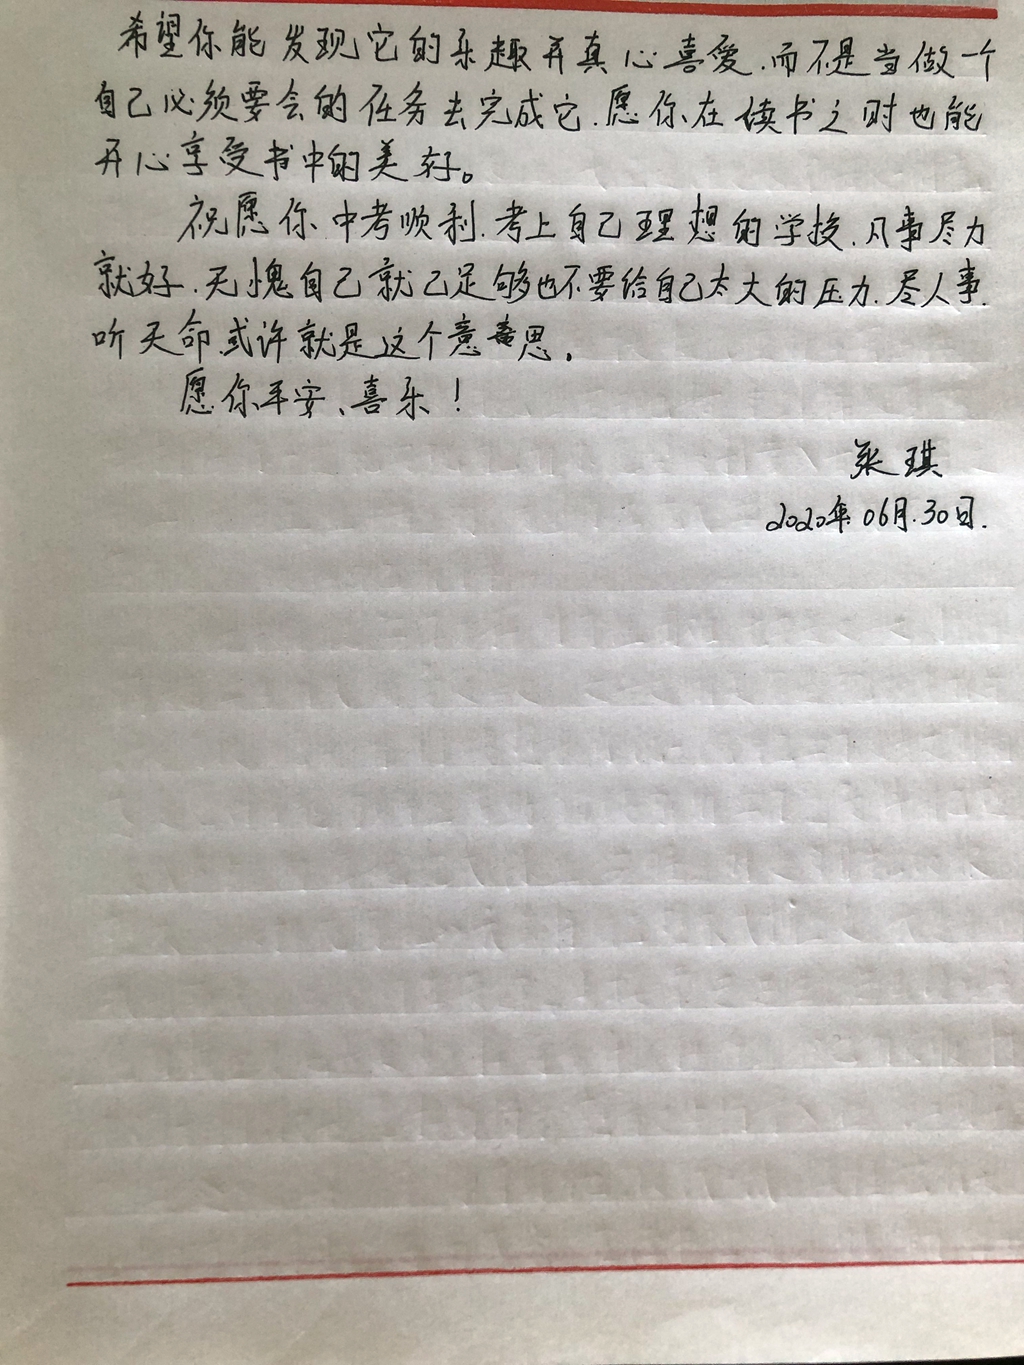 希望你能发现它的乐趣并真心喜爱.而不是当做一个
自己必须要会的任务去完成它.愿你在读书之时也能
开心享受书中的美好。
祝愿你.中考顺利.考上自己理想的学校.凡事尽力
就好.无愧自己就已足够也不要给自己太大的压力.尽人事.
听天命.或许就是这个意思.
愿你平安、喜乐!
张琪
2020年06月.30日.